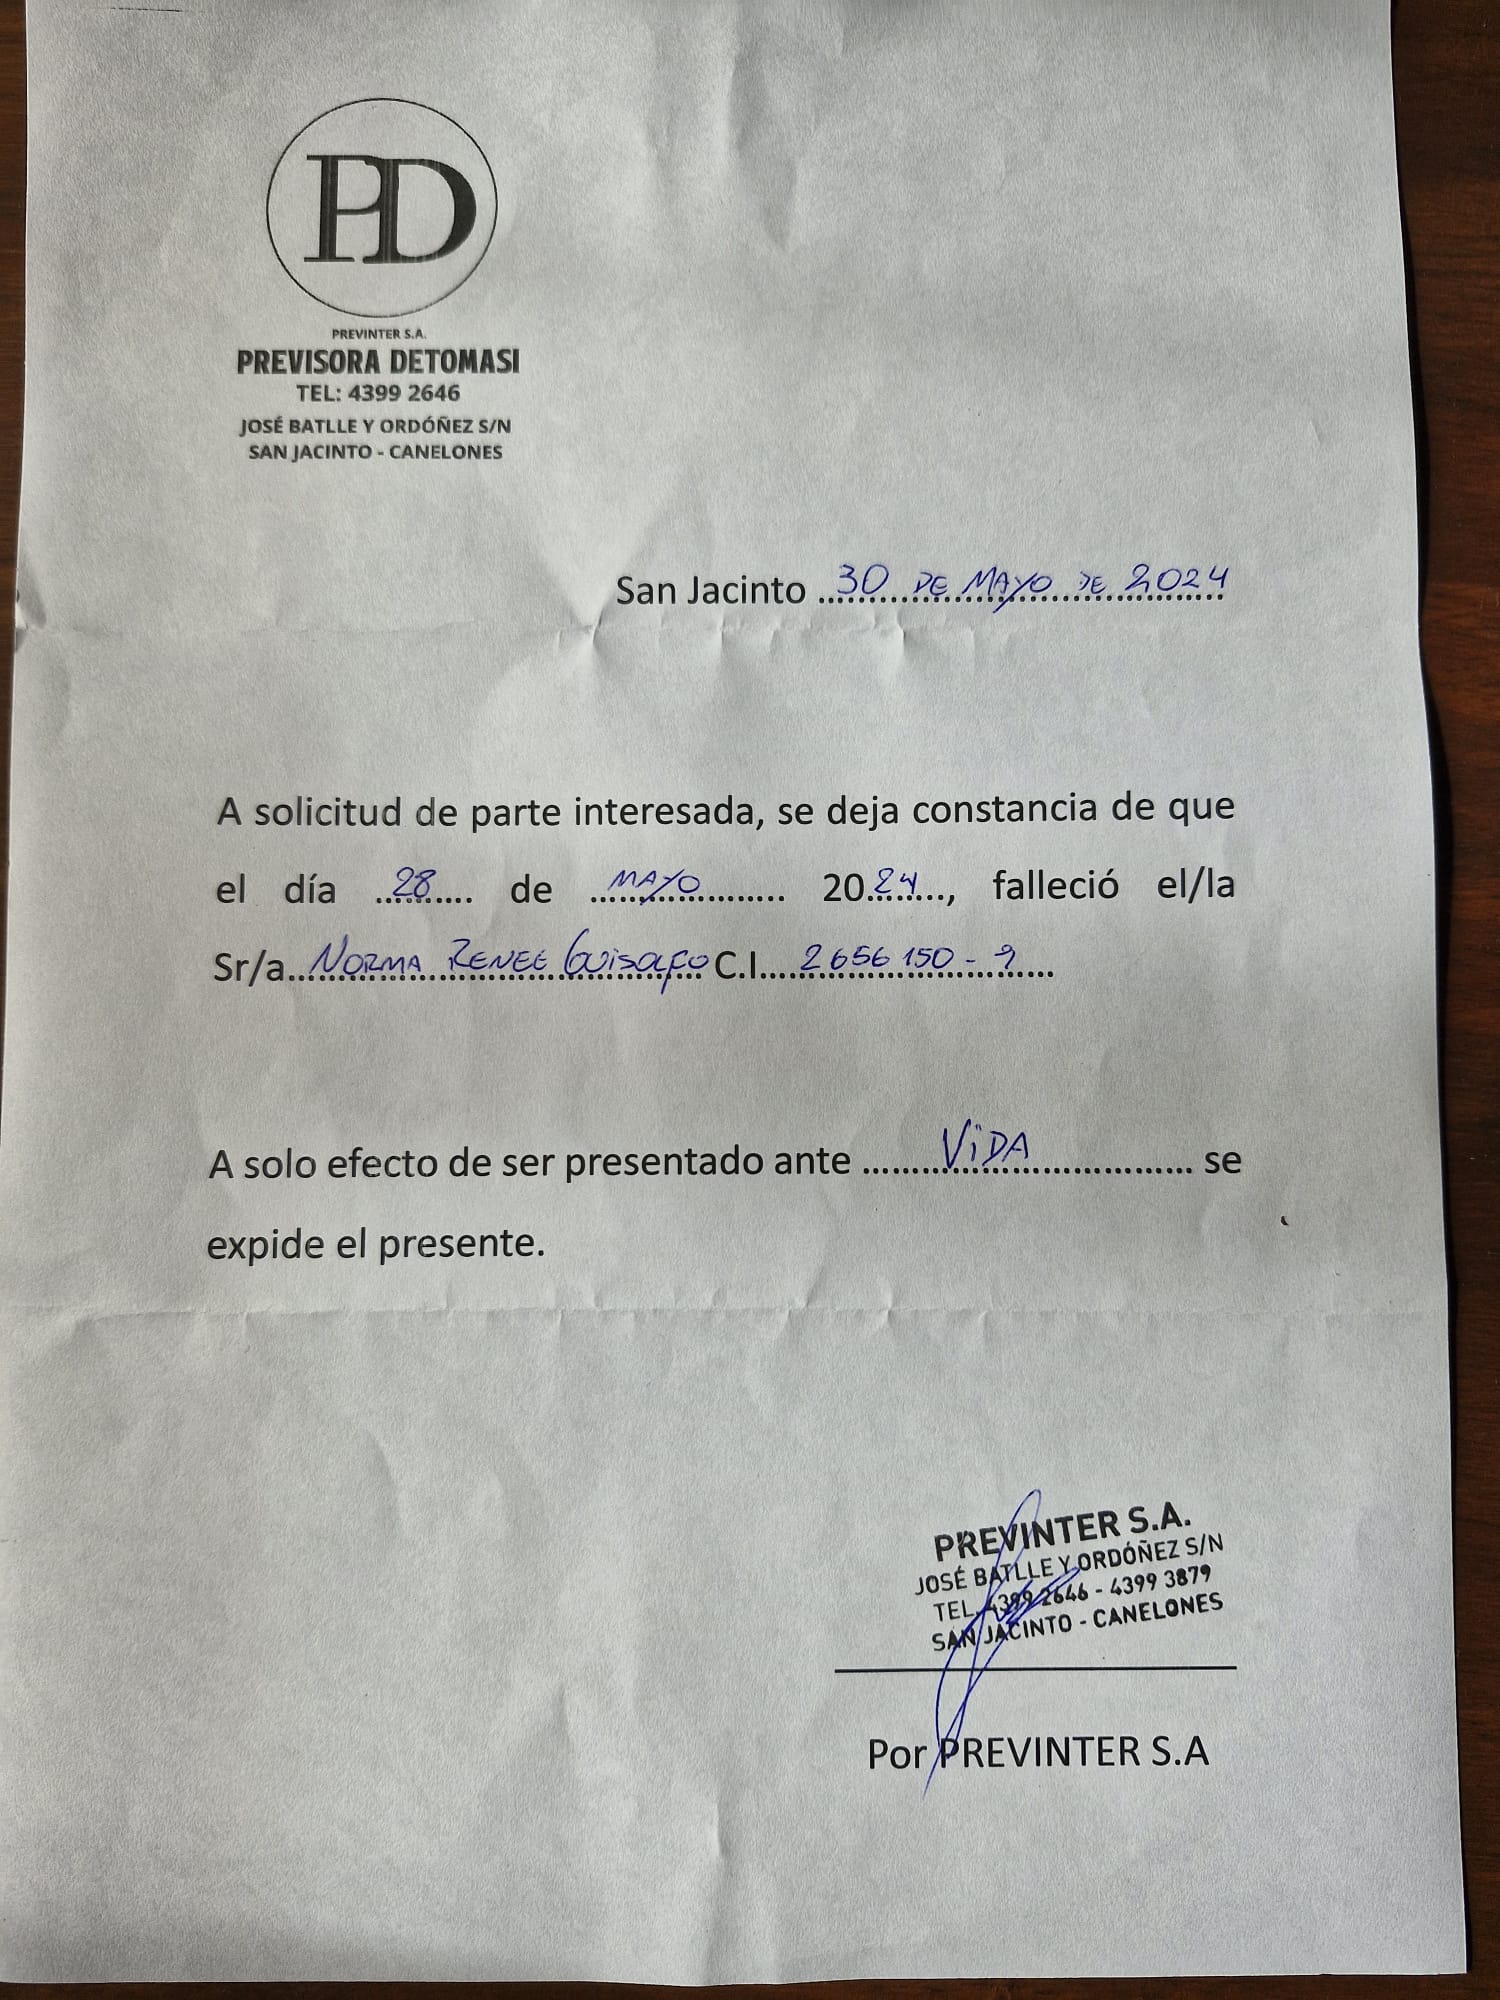 PD
PREVINTER S.A.
PREVISORA DETOMASI
TEL: 4399 2646
JOSÉ BATLLE Y ORDÓÑEZ S/N
SAN JACINTO - CANELONES
San Jacinto ..30 DE MAYO DE 2024
A solicitud de parte interesada, se deja constancia de que
el día ..28.... de ..MAYO........ 2024..., falleció el/la
Sr/a..NORMA RENEE Guisolfo C.I....2656150-9...
A solo efecto de ser presentado ante ........VIDA................ se
expide el presente.
PREVINTER S.A.
JOSÉ BATLLE Y ORDÓÑEZ S/N
TEL. 4399 2646 - 4399 3879
SAN JACINTO - CANELONES
Por PREVINTER S.A